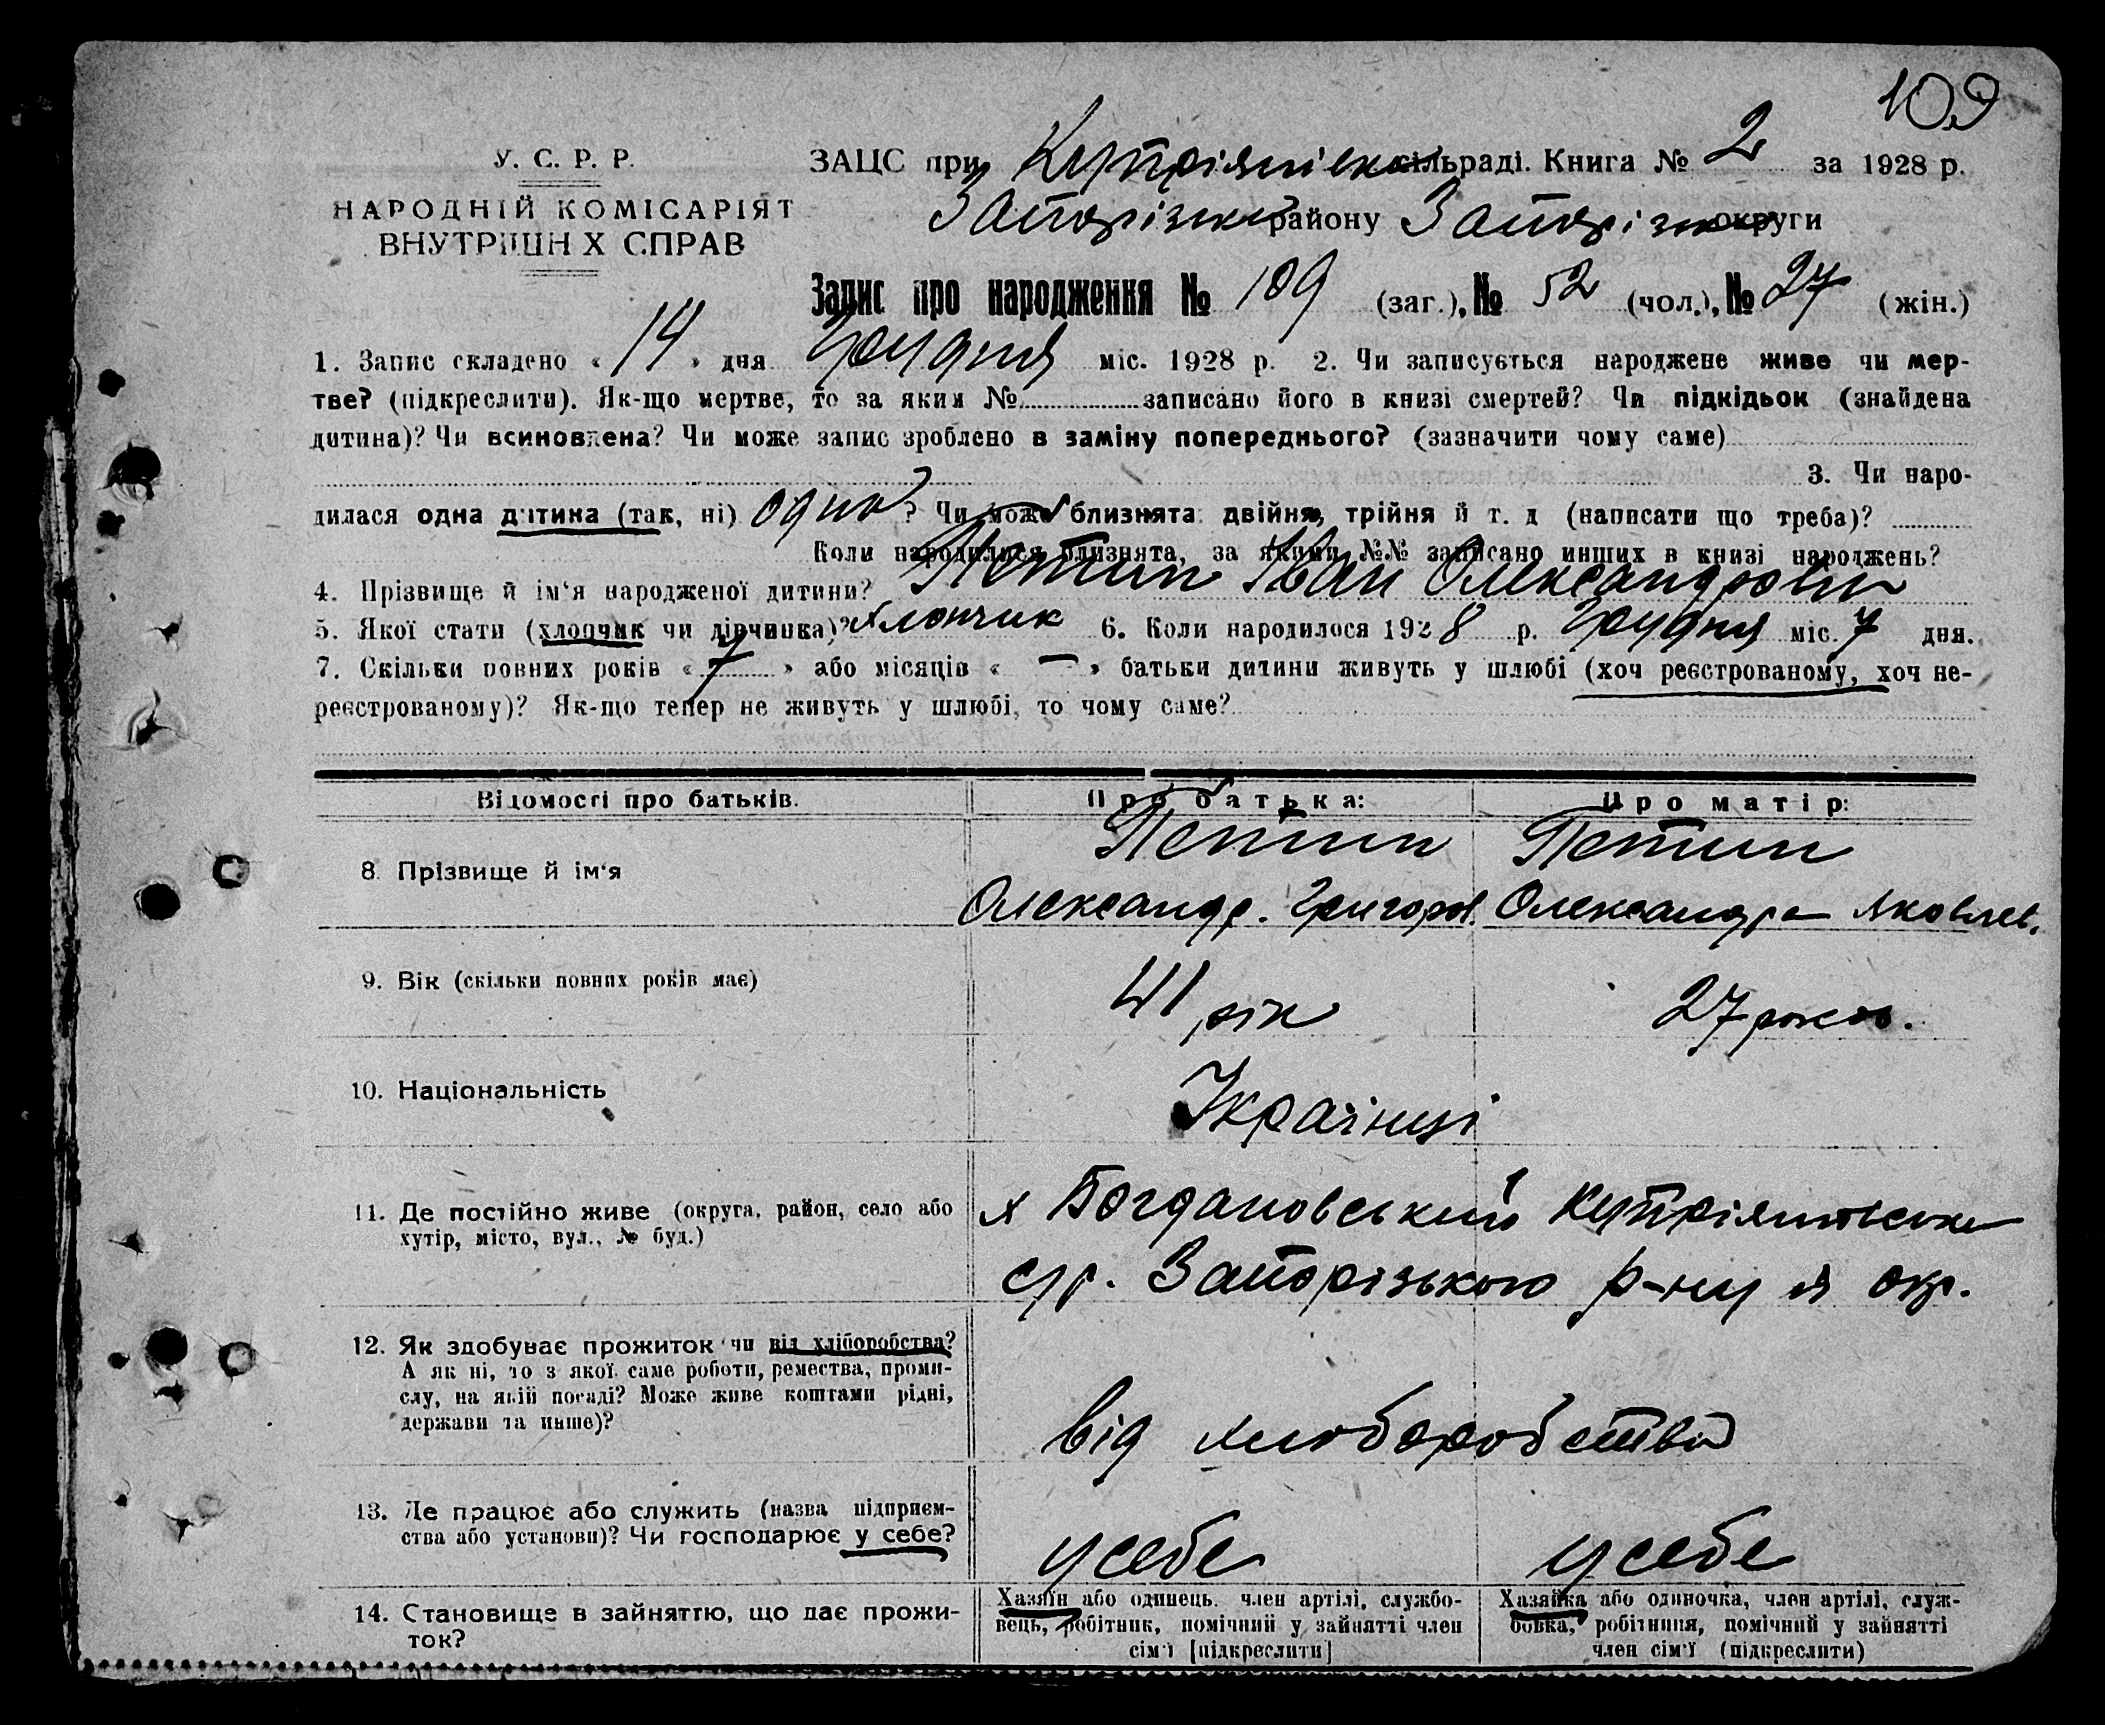 109
У. С. Р. Р.
НАРОДНІЙ КОМІСАРІЯТ
ВНУТРІШН Х СПРАВ
ЗАЦС при Купріянівск сільраді. Книга № 2 за 1928 р.
Запорізьк району Запорізьк округи
Запис про народження № 109 (заг.), № 52 (чол.), № 27 (жін.)
1. Запис складено « 14 » дня Грудня міс. 1928 р. 2. Чи записується народжене живе чи мер-
тве? (підкреслити). Як-що мертве, то за яким № записано його в книзі смертей? Чи підкідьок (знайдена
дитина)? Чи всиновлена? Чи може запис зроблено в заміну попереднього? (зазначити чому саме)
3. Чи наро-
дилася одна дитина (так, ні) одна? Чи може близнята: двійня, трійня й т. д (написати що треба)?
Коли народилися близнята, за якими №№ записано инших в книзі народжень?
4. Прізвище й ім'я народженої дитини? Петин Іван Олександрович
5. Якої стати (хлопчик чи дівчинка)? Хлопчик 6. Коли народилося 1928 р. Грудня міс. 7 дня.
7. Скільки повних років « 7 » або місяців « — » батьки дитини живуть у шлюбі (хоч реєстрованому, хоч не-
реєстрованому)? Як-що тепер не живуть у шлюбі, то чому саме?
Відомості про батьків. Про батька: Про матір:
8. Прізвище й ім'я Петин Петин
Олександр. Григоров. Олександра Яковлев.
9. Вік (скільки повних років має) 41 рік 27 років.
10. Національність Українці
11. Де постійно живе (округа, район, село або
хутір, місто, вул., № буд.)
х Богдановський Купріянівське
ср. Запорізького р-ну й окр.
12. Як здобуває прожиток чи від хліборобства?
А як ні, то з якої саме роботи, ремества, проми-
слу, на якій посаді? Може живе коштами рідні,
держави та инше)?
від хліборобства
13. Де працює або служить (назва підприєм-
ства або установи)? Чи господарює у себе?
у себе у себе
14. Становище в зайняттю, що дає прожи-
ток?
Хазяїн або одинець, член артілі, службо-
вець, робітник, помічний у зайнятті член
сім'ї [підкреслити]
Хазяйка або одиночка, член артілі, служ-
бовка, робітниця, помічний у зайнятті
член сім'ї (підкреслити)